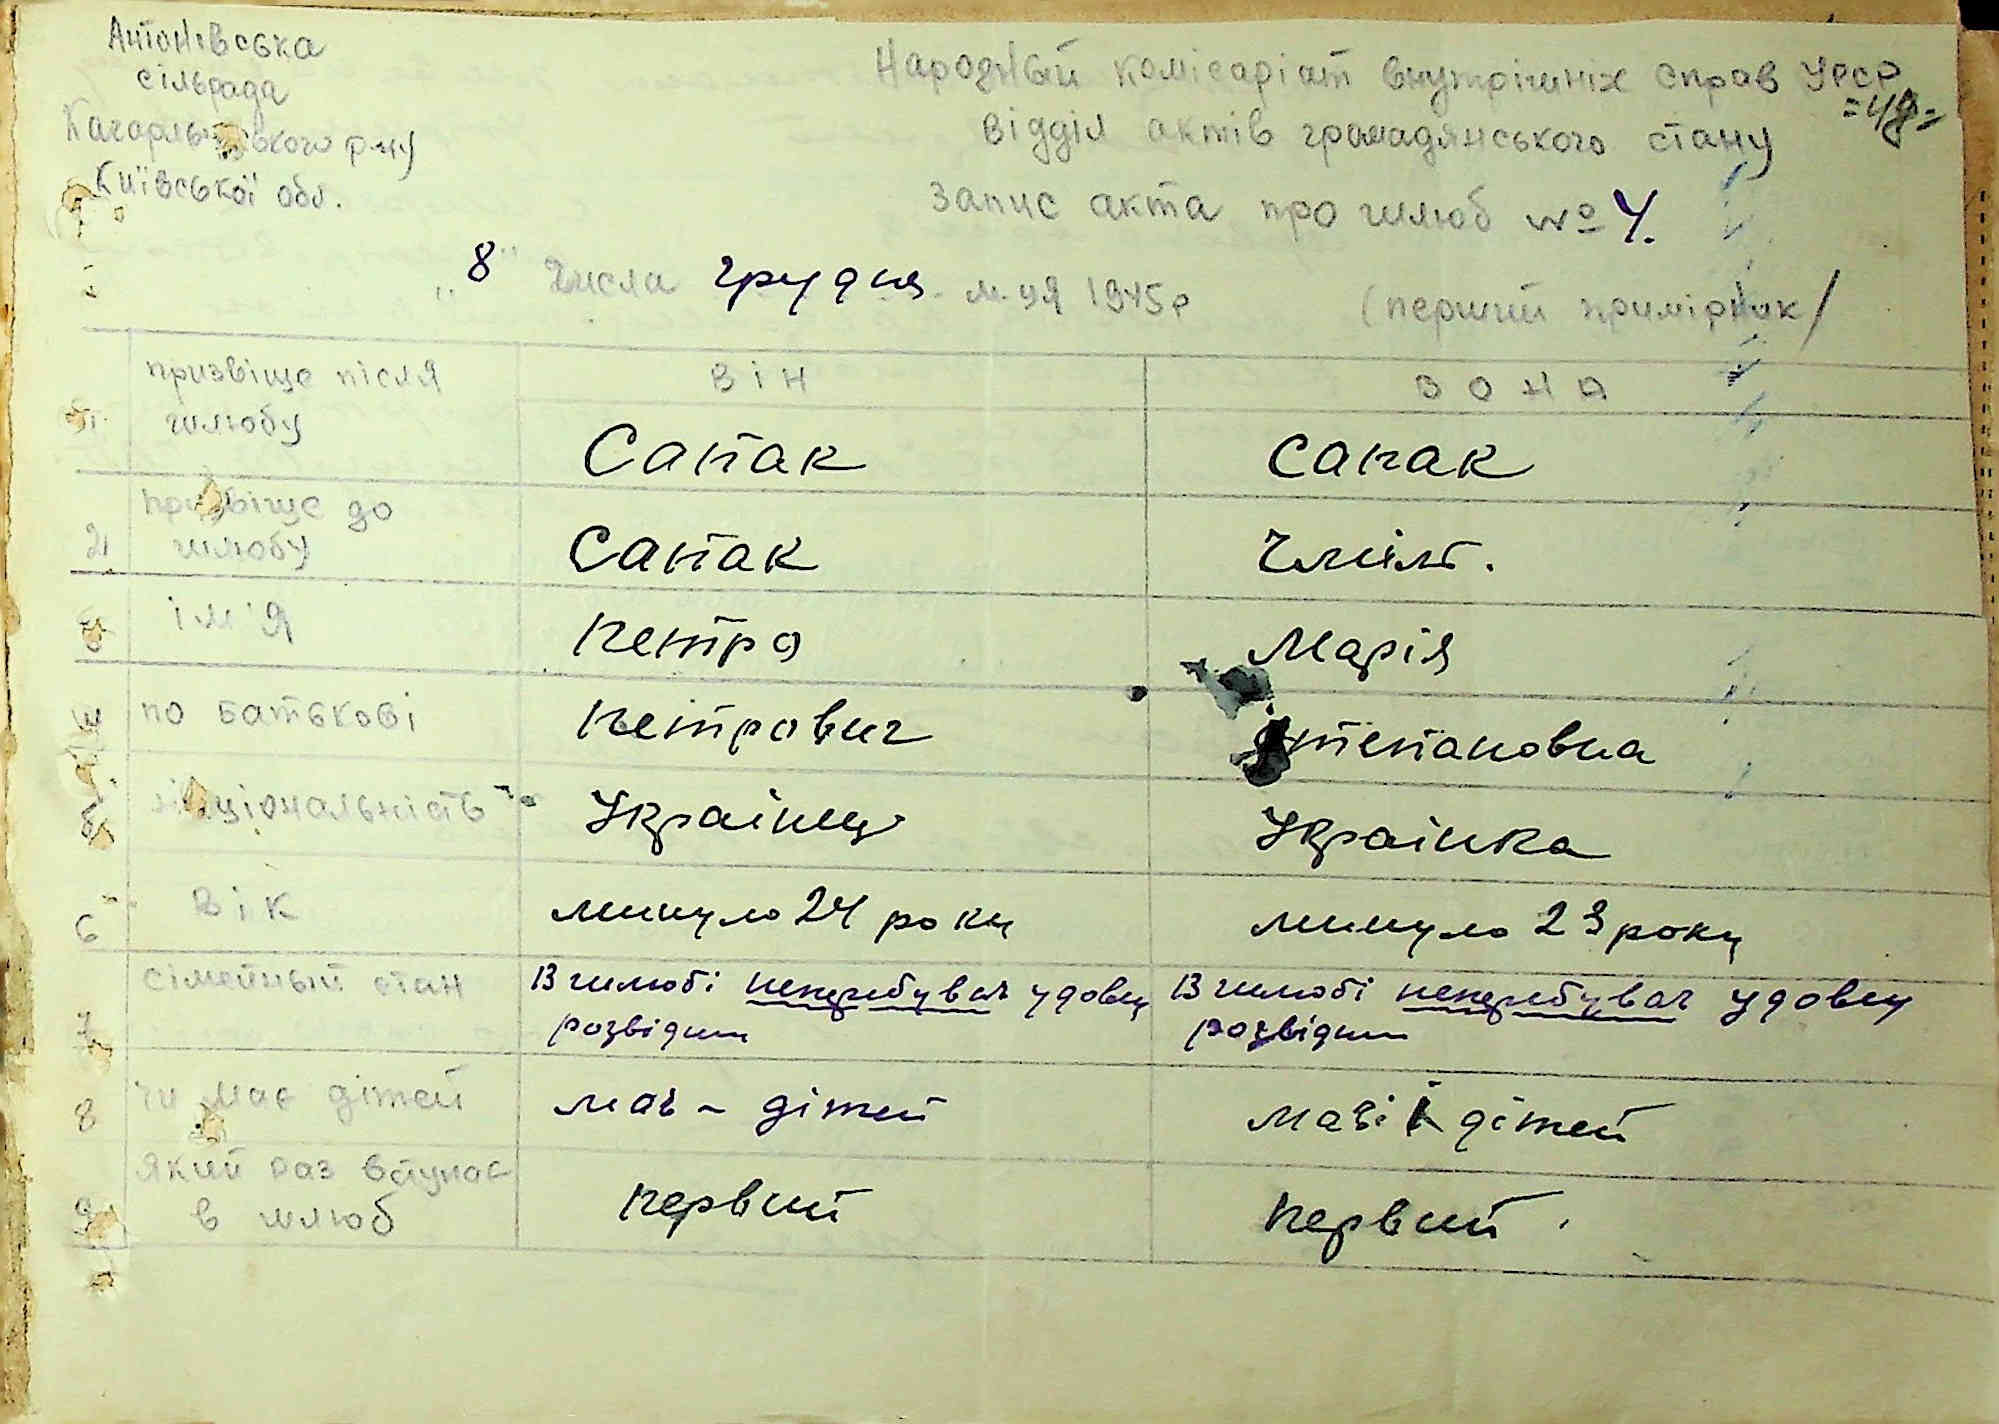 Антонівська
сільрада
Кагарлицького р-ну
Київської обл.
Народный комісаріат внутрішніх справ УРСР
відділ актів громадянського стану
Запис акта про шлюб № 4.
"8" числа грудня м-ця 1945р (перший примірник/
призвіще після шлюбу
він
вона
Сапак
Сапак
2 призвіще до шлюбу
Сапак
3 ім'я
Петро
Марія
по батькові
Петрович
Степановна
національність
Українец
Українка
6 вік
минуло 24 роки
минуло 23 року
7 сімейный стан
В шлюбі неперебував удовец
розвідин
В шлюбі неперебував удовец
розвідин
8 чи має дітей
має - дітей
дітей
9 який раз вступає
в шлюб
первий
первий.